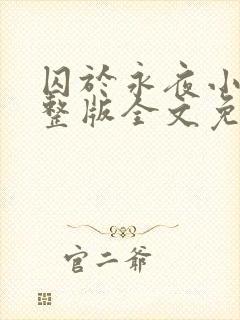 囚於永夜小
整版全文免
官二爷